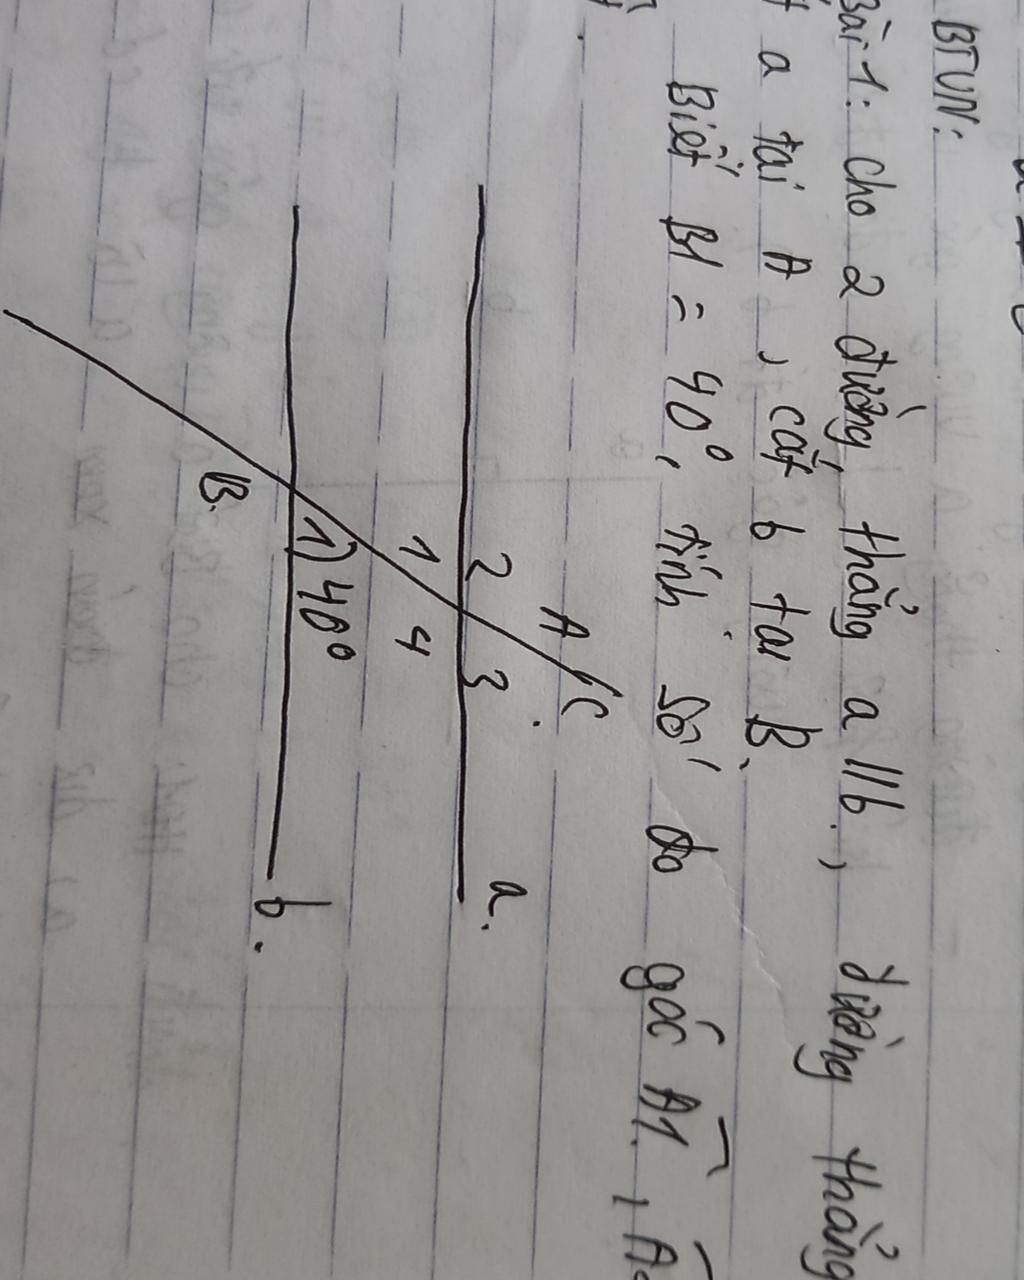 BTVN:
Bài 1: cho 2 đường thẳng a // b, đường thẳng
a tại A, cắt b tại B.
Biết B1 = 40°, tính số đo góc A1,
C
A
2
3
a.
1
4
1
40°
B.
b.